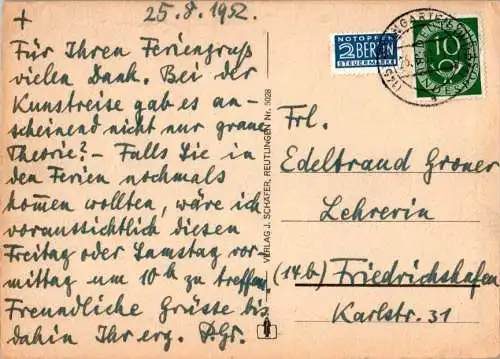 + 25.8.1952.
Für Ihren Feriengruß
vielen Dank. Bei der
Kunstreise gab es an-
scheinend nicht nur graue
Theorie? - Falls Sie in
den Ferien nochmals
kommen wollten, wäre ich
voraussichtlich diesen
Freitag oder Samstag vor-
mittag um 10h zu treffen.
Freundliche Grüsse bis
dahin Ihr erg.
VERLAG J. SCHÄFER, REUTLINGEN Nr. 5028
NOTOPFER
2 BERLIN
STEUERMARKE
10
Frl.
Edeltraud Groner
Lehrerin
(14b) Friedrichshafen
Karlstr. 31